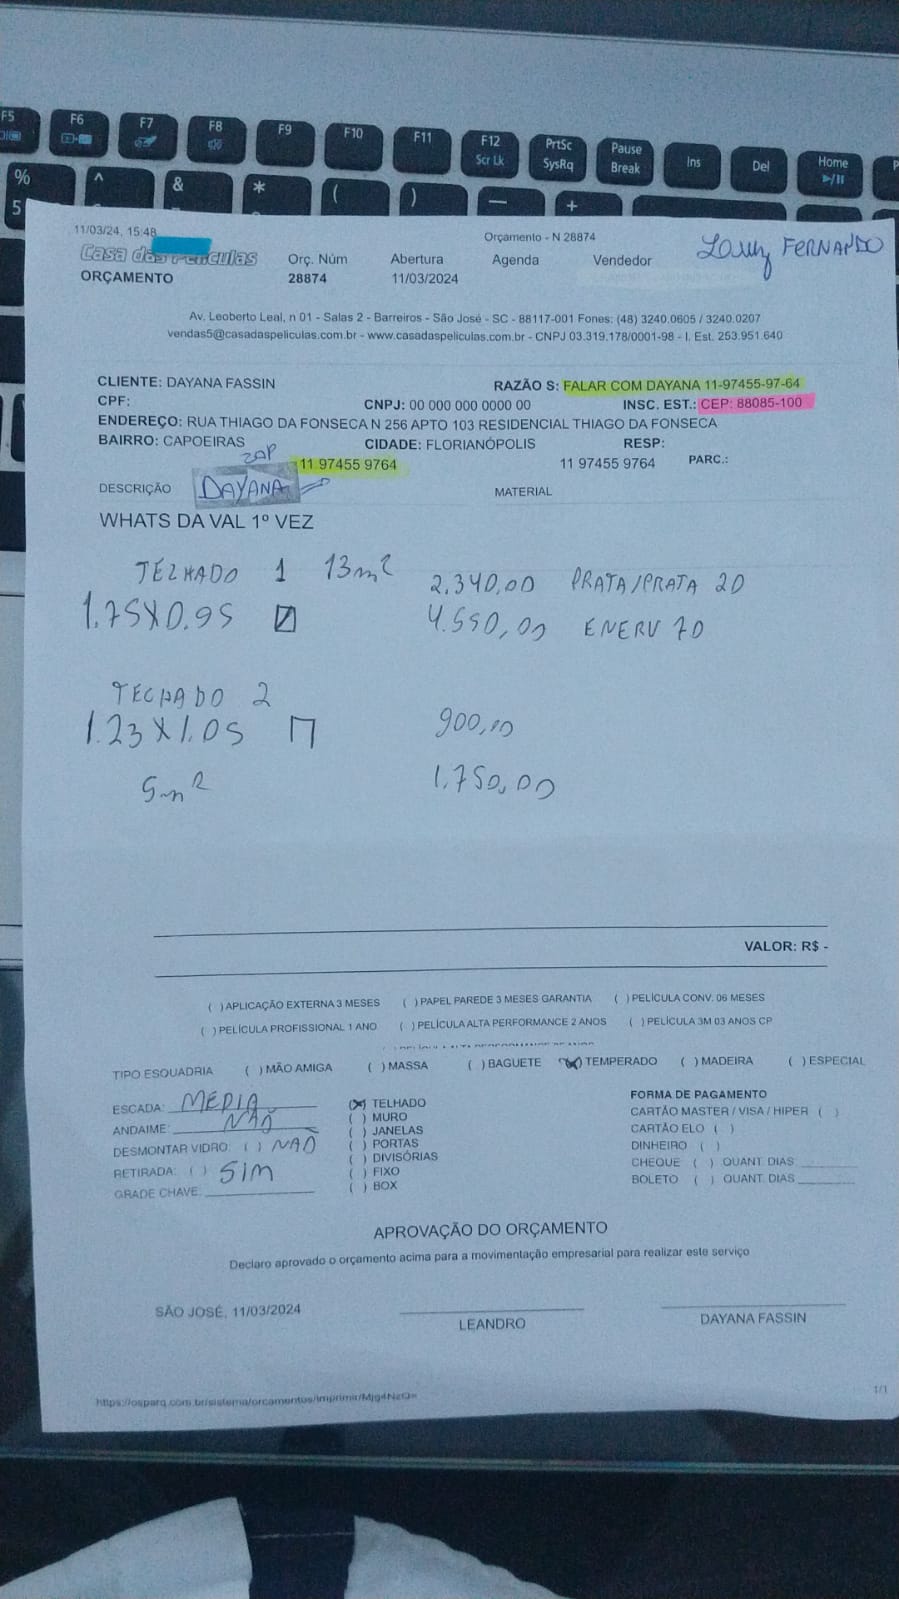 F5 F6 F7 F8 F9 F10 F11 F12 Scr Lk PrtSc SysRq Pause Break Ins Del Home
% 5 ^ & * ( ) — +
11/03/24, 15:48
Orçamento - N 28874
Casa das Películas
Orç. Núm Abertura Agenda Vendedor FERNANDO
ORÇAMENTO 28874 11/03/2024
Av. Leoberto Leal, n 01 - Salas 2 - Barreiros - São José - SC - 88117-001 Fones: (48) 3240.0605 / 3240.0207
vendas5@casadaspeliculas.com.br - www.casadaspeliculas.com.br - CNPJ 03.319.178/0001-98 - I. Est. 253.951.640
CLIENTE: DAYANA FASSIN RAZÃO S: FALAR COM DAYANA 11-97455-97-64
CPF: CNPJ: 00 000 000 0000 00 INSC. EST.: CEP: 88085-100
ENDEREÇO: RUA THIAGO DA FONSECA N 256 APTO 103 RESIDENCIAL THIAGO DA FONSECA
BAIRRO: CAPOEIRAS CIDADE: FLORIANÓPOLIS RESP:
ZAP 11 97455 9764 11 97455 9764 PARC.:
DESCRIÇÃO DAYANA MATERIAL
WHATS DA VAL 1º VEZ
TELHADO 1 13m² 2.340,00 PRATA/PRATA 20
1.75X0.95 4.550,00 ENERV 70
TELHADO 2
1.23X1.05 900,00
5m² 1.750,00
VALOR: R$ -
( )APLICAÇÃO EXTERNA 3 MESES ( )PAPEL PAREDE 3 MESES GARANTIA ( )PELÍCULA CONV. 06 MESES
( )PELÍCULA PROFISSIONAL 1 ANO ( )PELÍCULA ALTA PERFORMANCE 2 ANOS ( )PELÍCULA 3M 03 ANOS CP
TIPO ESQUADRIA ( )MÃO AMIGA ( )MASSA ( )BAGUETE (X)TEMPERADO ( )MADEIRA ( )ESPECIAL
ESCADA: MEDIA (X) TELHADO FORMA DE PAGAMENTO
ANDAIME: NÃO ( ) MURO CARTÃO MASTER / VISA / HIPER ( )
DESMONTAR VIDRO: ( ) NAO ( ) JANELAS CARTÃO ELO ( )
( ) PORTAS DINHEIRO ( )
RETIRADA: ( ) SIM ( ) DIVISÓRIAS CHEQUE ( ) QUANT. DIAS
GRADE CHAVE: ( ) FIXO BOLETO ( ) QUANT. DIAS
( ) BOX
APROVAÇÃO DO ORÇAMENTO
Declaro aprovado o orçamento acima para a movimentação empresarial para realizar este serviço
SÃO JOSÉ, 11/03/2024
LEANDRO DAYANA FASSIN
1/1